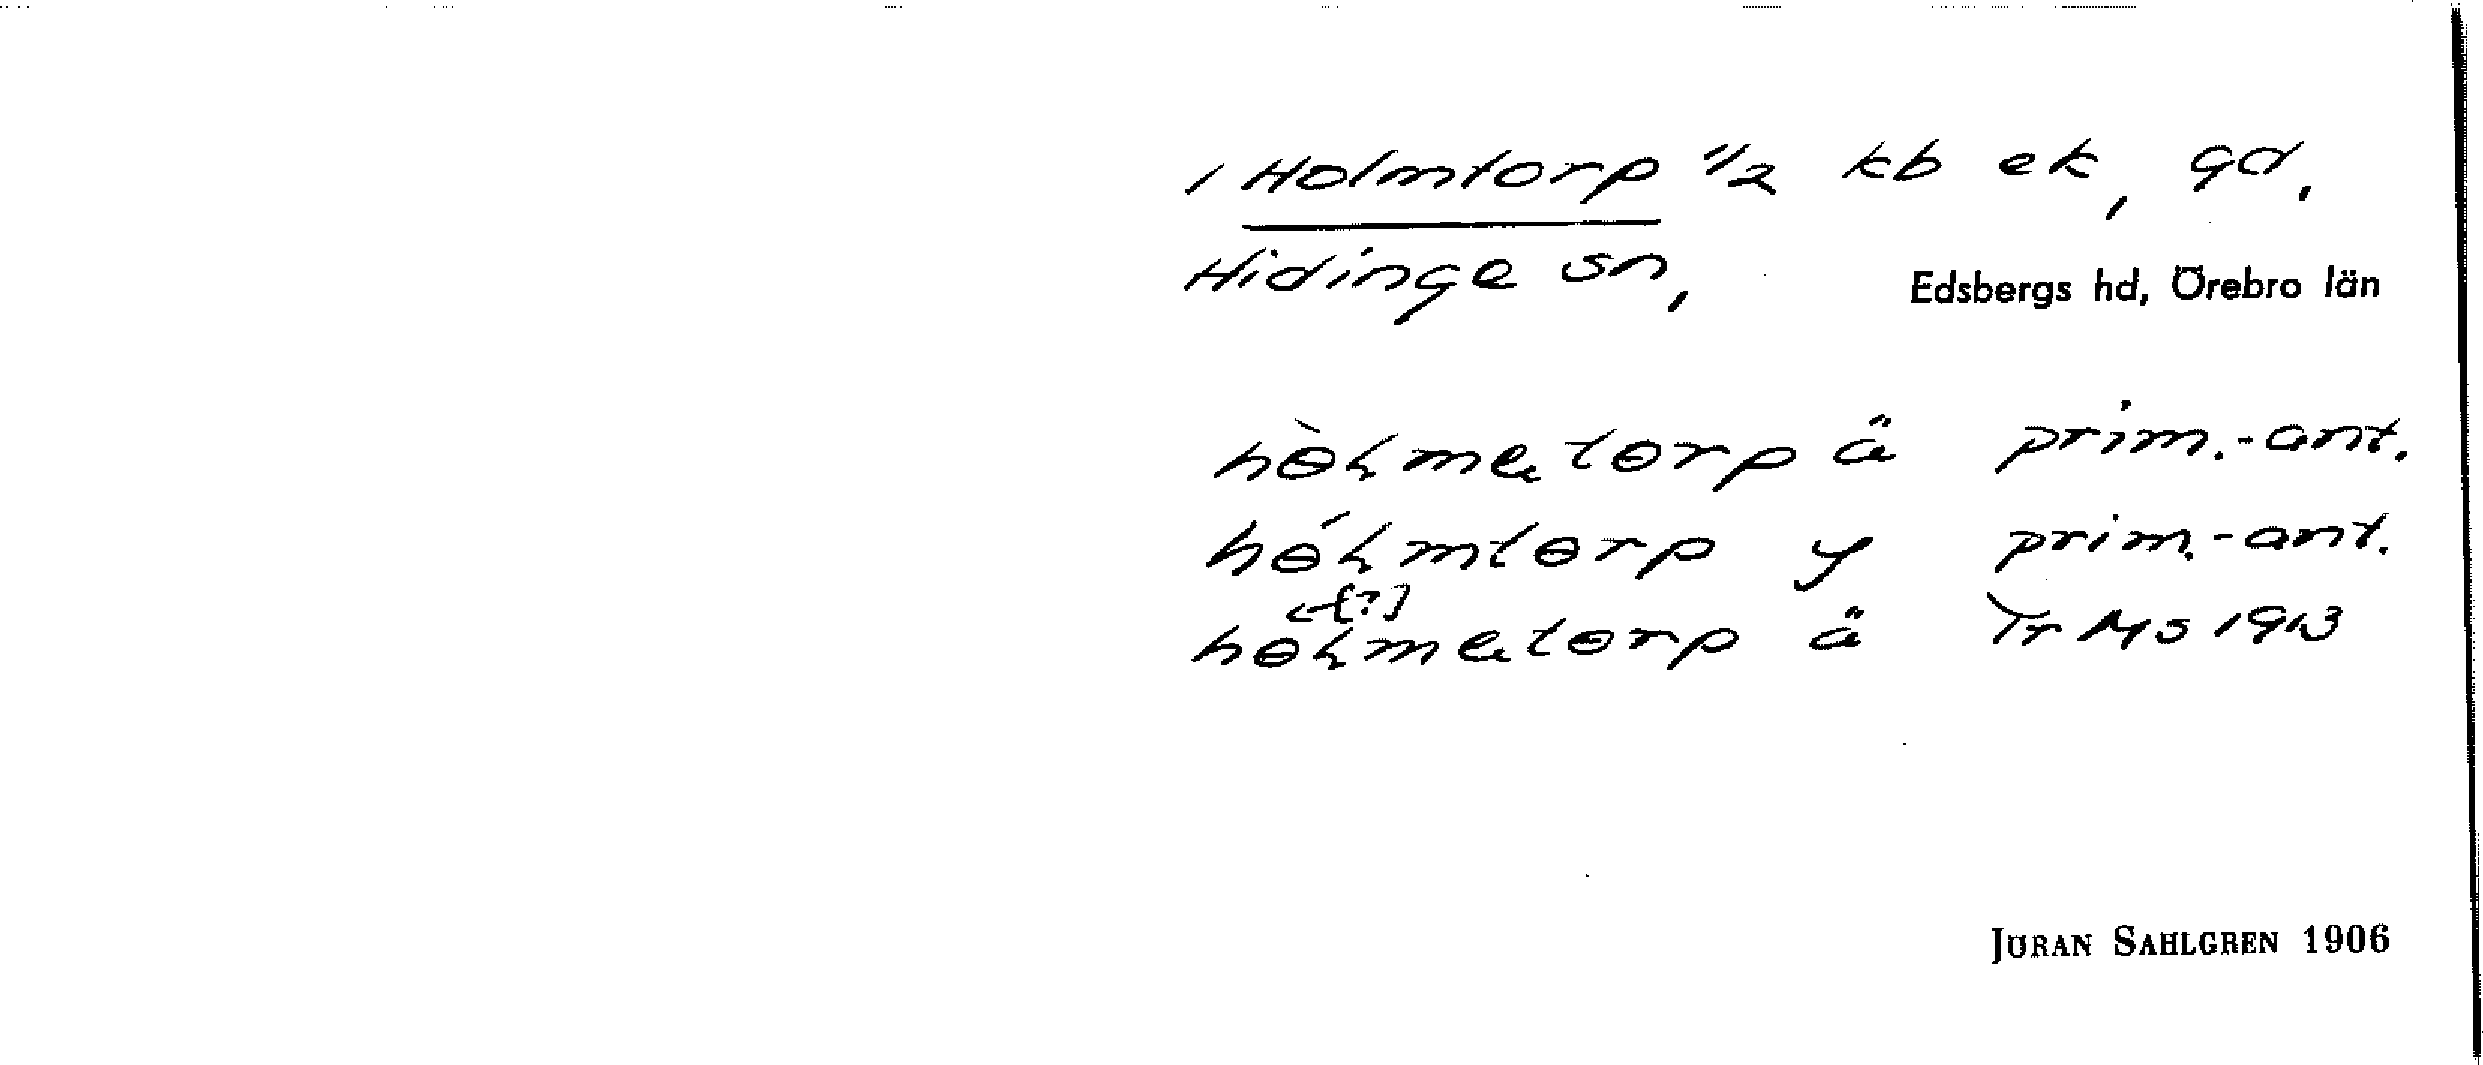 1 Holmtorp 1/2 kb ek, gd,
Hidinge sn, Edsbergs hd, Örebro län
hɵ̀ɦmɐtɵrp ä prim.-ant.
hɵ́ɦmtɵrp y prim.-ant.
[?]
ä Tr MS 1913
JÖRAN SAHLGREN 1906